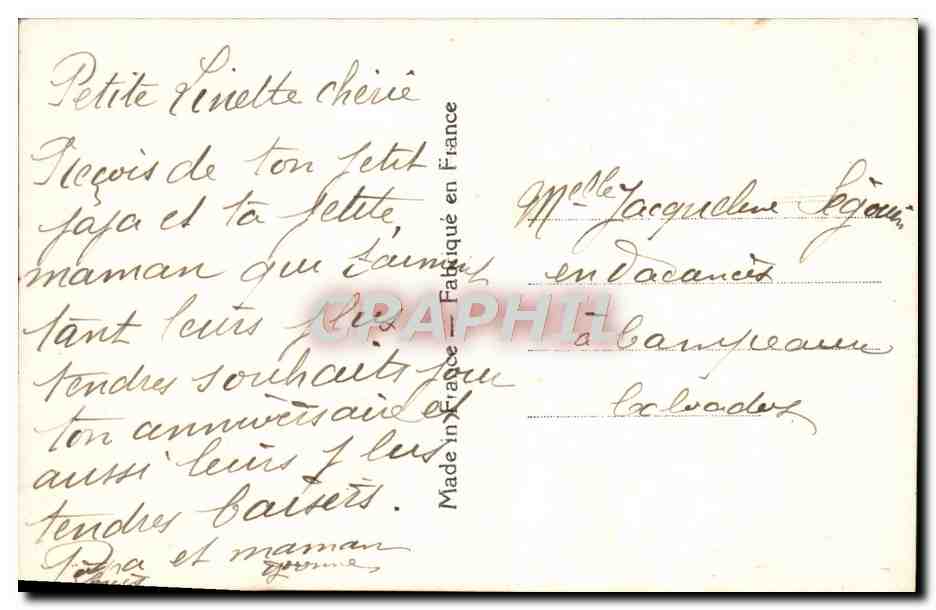 Petite Linette chérie
Reçois de ton petit
papa et ta petite
maman qui t'aiment
tant leurs plus
tendres souhaits pour
ton anniversaire et
aussi leurs plus
tendres baisers.
Papa et maman
Yvonne
Made in France — Fabriqué en France
CPAPHIL
Melle Jacqueline Ségouin
en vacances
à Campeaux
Calvados